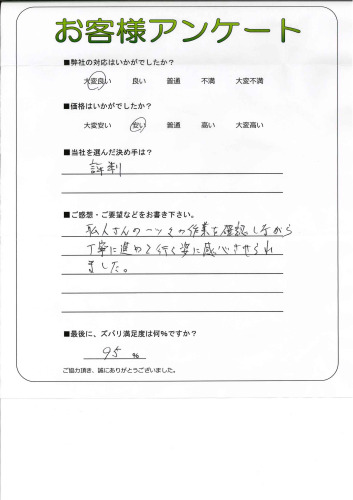 お客様アンケート
■弊社の対応はいかがでしたか？
大変良い 良い 普通 不満 大変不満
■価格はいかがでしたか？
大変安い 安い 普通 高い 大変高い
■当社を選んだ決め手は？
評判
■ご感想・ご要望などをお書き下さい。
職人さんの一つ々の作業を確認しながら
丁寧に進めて行く姿に感心させられ
ました。
■最後に、ズバリ満足度は何%ですか？
95 %
ご協力頂き、誠にありがとうございました。